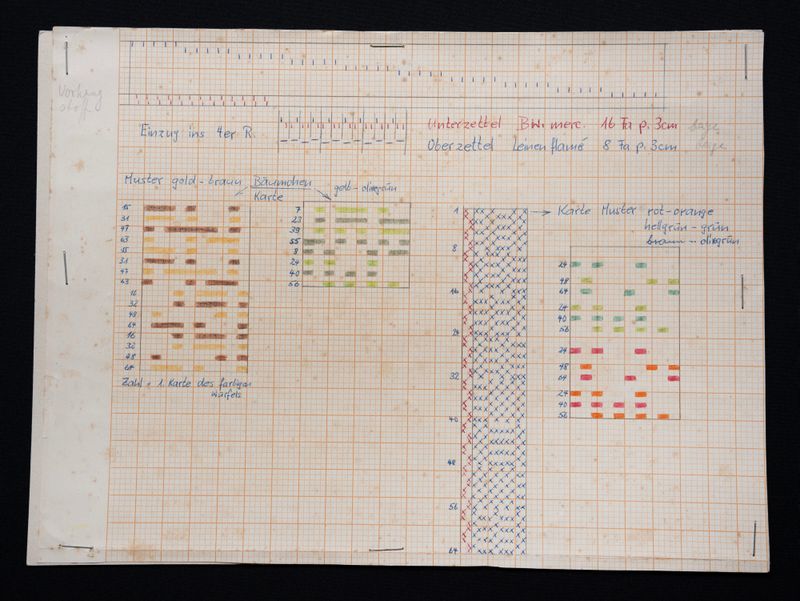 Vorhang
stoff
Einzug ins 4er R.
Unterzettel BW. merc. 16 Fa p. 3cm beige
Oberzettel Leinen flamé 8 Fa p. 3cm beige
Muster gold-braun Bäumchen gelb-olivgrün
Karte
15
31
47
63
15
31
47
63
16
32
48
64
16
32
48
64
Zahl = 1. Karte des farbigen
würfels
7
23
39
55
8
24
40
56
1
8
16
24
32
40
48
56
64
Karte Muster rot-orange
hellgrün-grün
braun-olivgrün
24
48
64
24
40
56
24
48
64
24
40
56